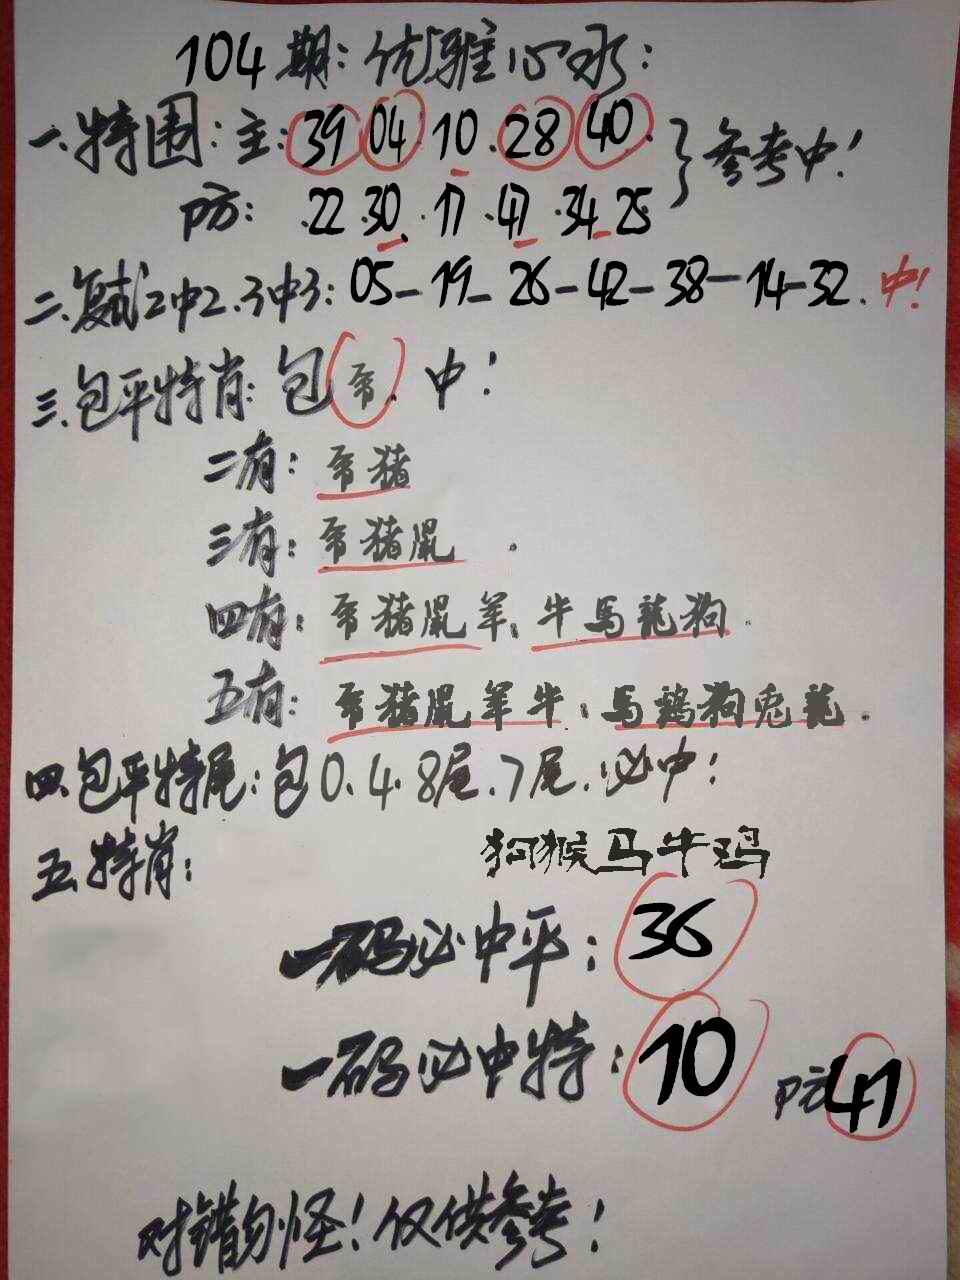 104期:优雅心水:
一.特围:主:39 04 10.28 40. 参考中!
防:.22.30.17.47.34.25
二.复试2中2.3中3:05-19-26-42-38-14-32.中!
三.包平特肖:包.中!
二有:猪
三有:猪鼠.
四有:猪鼠羊,牛馬龍狗.
五有:猪鼠羊牛.馬鷄狗兎龍.
四.包平特尾:包0.4.8尾.7尾.必中!
五.特肖:
狗猴马牛鸡
一码必中平:36
一码必中特:10 防
对错勿怪!仅供参考!